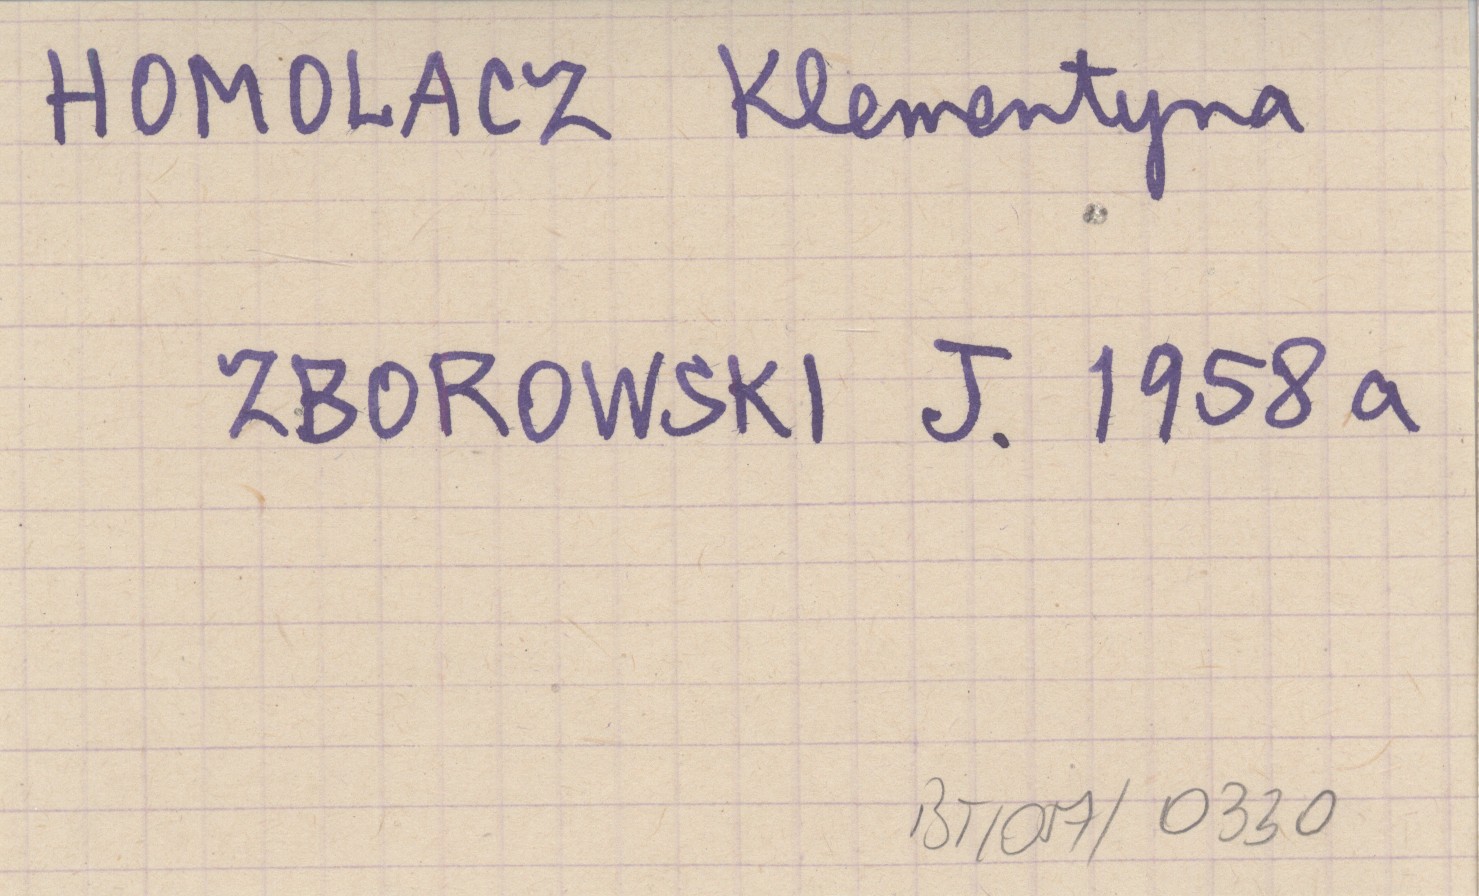 HOMOLACZ Klementyna
ZBOROWSKI J. 1958 a
0330